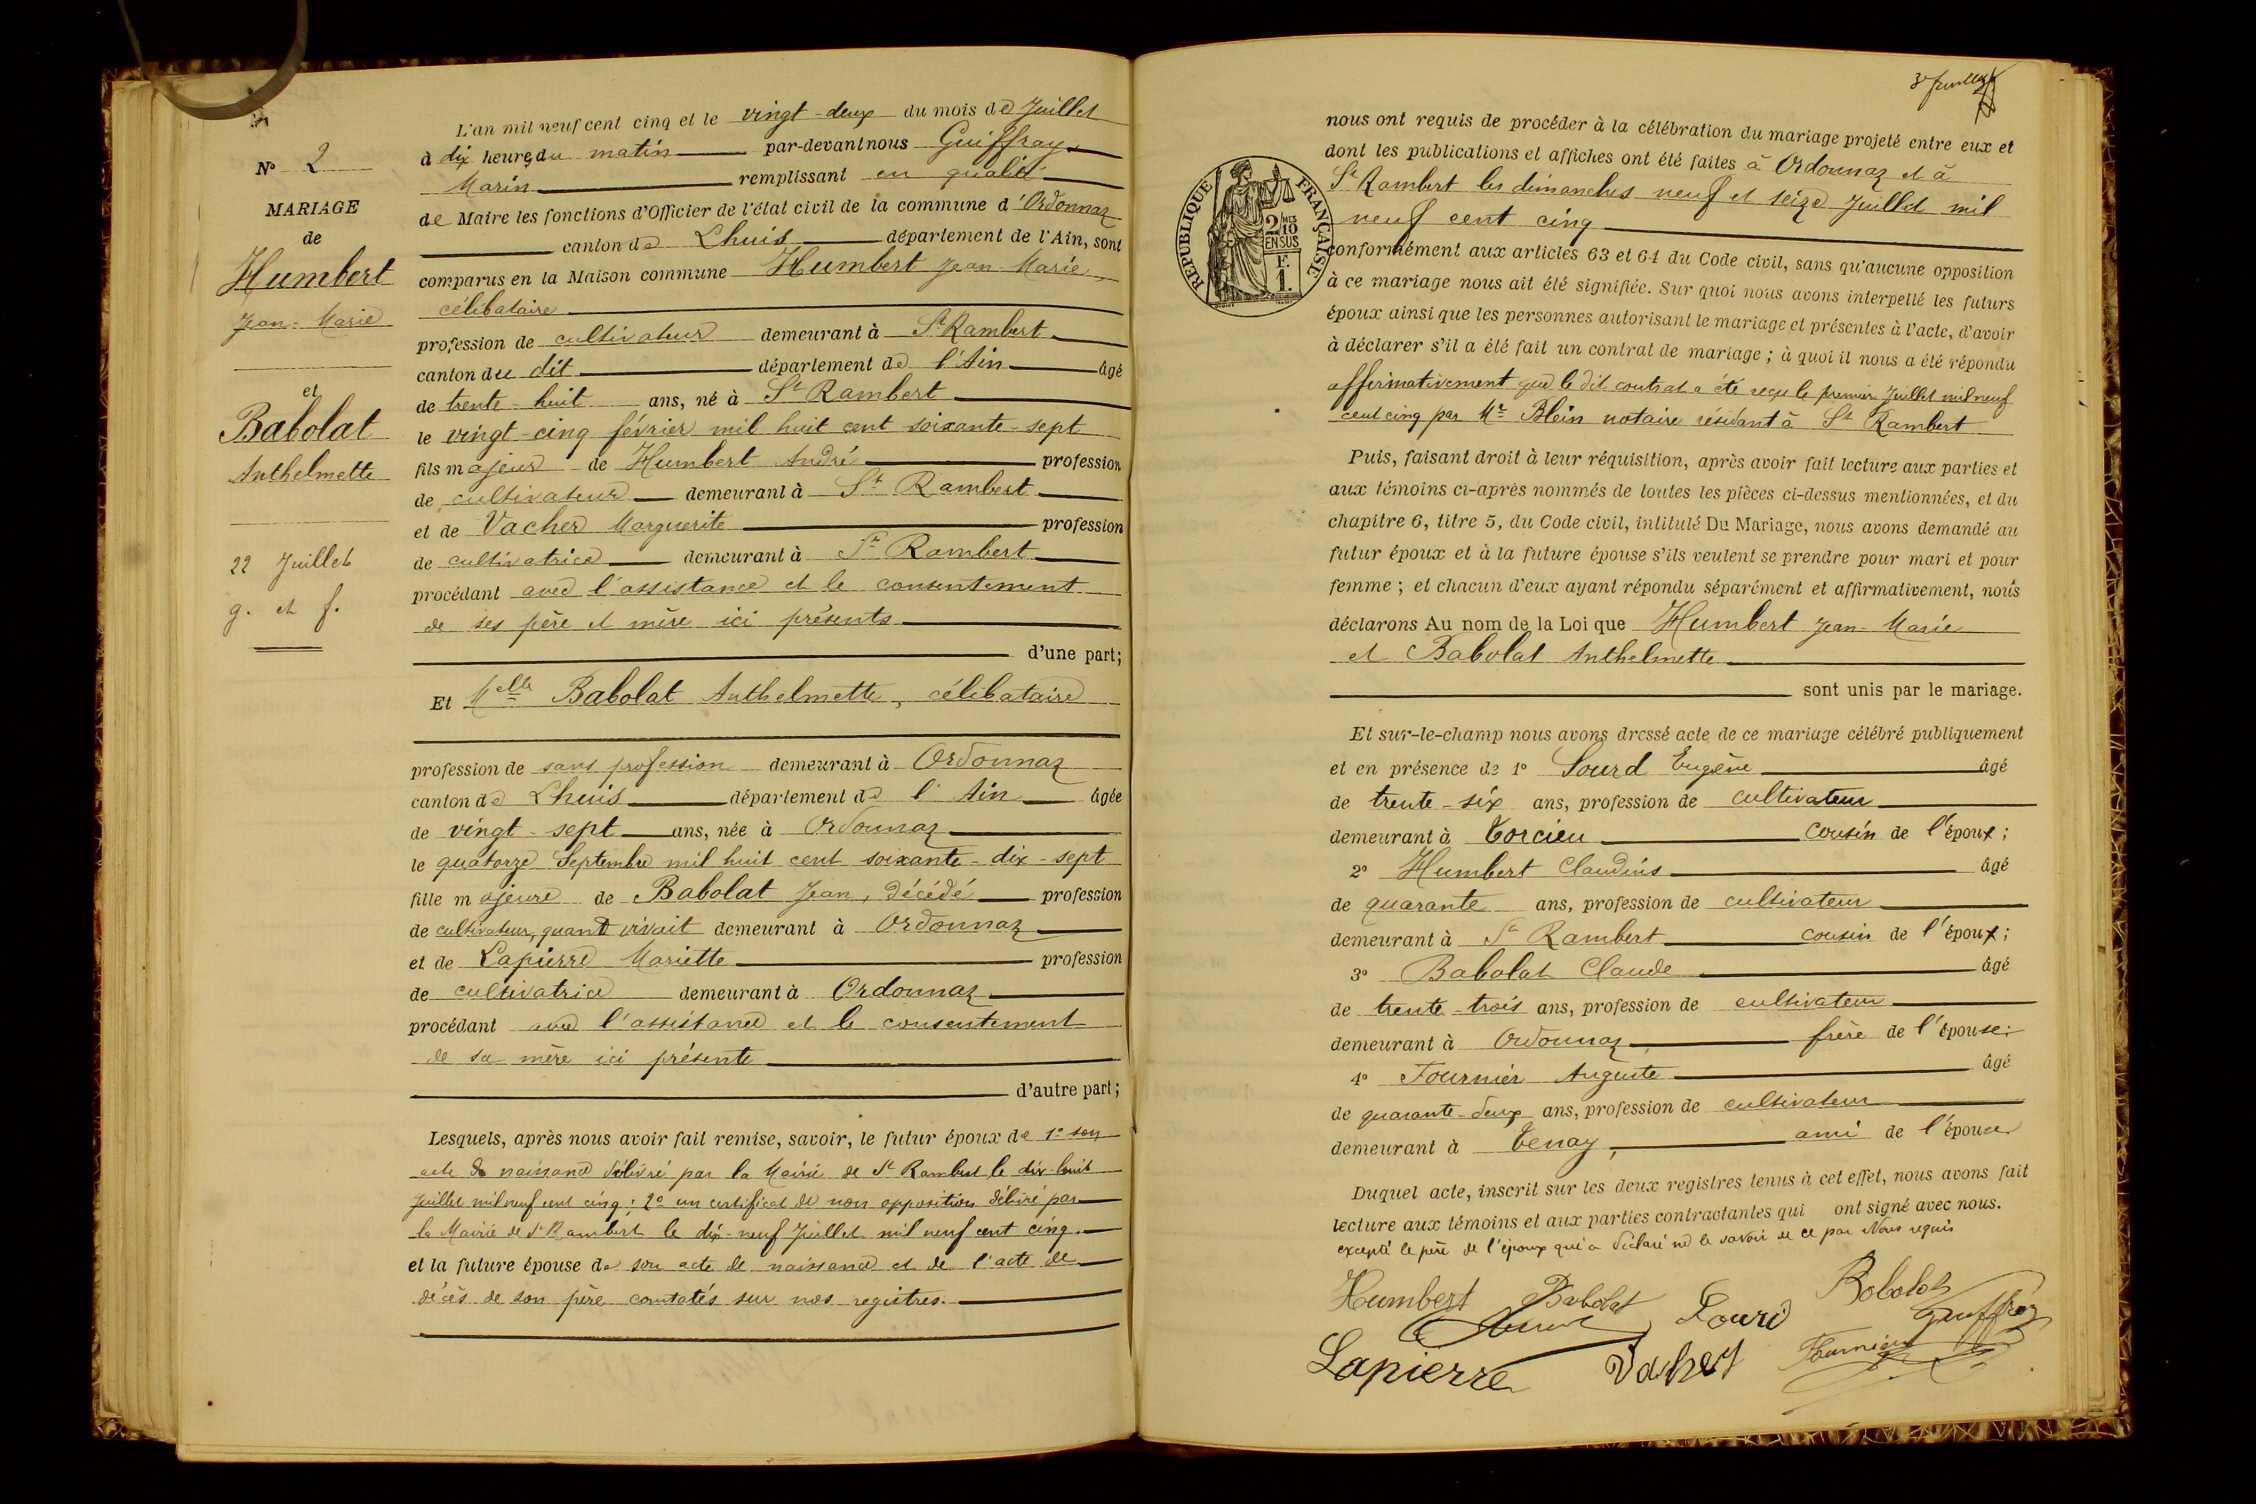 N° 2
MARIAGE
de
Humbert
Jean-Marie
et
Babolat
Anthelmette
22 Juillet
g. et f.
L'an mil neuf cent cinq et le vingt-deux du mois de Juillet
à dix heures du matin par-devant nous Guiffray
Marin remplissant en qualité
de Maire les fonctions d'Officier de l'état civil de la commune d'Ordonnaz
canton de Lhuis département de l'Ain, sont
comparus en la Maison commune Humbert Jean-Marie,
célibataire
profession de cultivateur demeurant à St Rambert
canton du dit département de l'Ain âgé
de trente-huit ans, né à St Rambert
le vingt-cinq février mil huit cent soixante-sept
fils majeur de Humbert André profession
de cultivateur demeurant à St Rambert
et de Vacher Marguerite profession
de cultivatrice demeurant à St Rambert
procédant avec l'assistance et le consentement
de ses père et mère ici présents
d'une part;
Et Melle Babolat Anthelmette, célibataire
profession de sans profession demeurant à Ordonnaz
canton de Lhuis département de l'Ain âgée
de vingt-sept ans, née à Ordonnaz
le quatorze Septembre mil huit cent soixante-dix-sept
fille majeure de Babolat Jean, décédé profession
de cultivateur, quand vivait demeurant à Ordonnaz
et de Lapierre Mariette profession
de cultivatrice demeurant à Ordonnaz
procédant avec l'assistance et le consentement
de sa mère ici présente
d'autre part;
Lesquels, après nous avoir fait remise, savoir, le futur époux de 1° son
acte de naissance délivré par la Mairie de St Rambert le dix-huit
Juillet mil neuf cent cinq; 2° un certificat de non opposition délivré par
la Mairie de St Rambert le dix-neuf Juillet mil neuf cent cinq.
et la future épouse de son acte de naissance et de l'acte de
décès de son père constatés sur nos registres.
3e feuillet
REPUBLIQUE FRANÇAISE
2/10 MES
EN SUS
F.
1.
nous ont requis de procéder à la célébration du mariage projeté entre eux et
dont les publications et affiches ont été faites à Ordonnaz et à
St Rambert les dimanches neuf et seize Juillet mil
neuf cent cinq
conformément aux articles 63 et 64 du Code civil, sans qu'aucune opposition
à ce mariage nous ait été signifiée. Sur quoi nous avons interpellé les futurs
époux ainsi que les personnes autorisant le mariage et présentes à l'acte, d'avoir
à déclarer s'il a été fait un contrat de mariage; à quoi il nous a été répondu
affirmativement que le dit contrat a été reçu le premier Juillet mil neuf
cent cinq par Me Blein notaire résidant à St Rambert
Puis, faisant droit à leur réquisition, après avoir fait lecture aux parties et
aux témoins ci-après nommés de toutes les pièces ci-dessus mentionnées, et du
chapitre 6, titre 5, du Code civil, intitulé Du Mariage, nous avons demandé au
futur époux et à la future épouse s'ils veulent se prendre pour mari et pour
femme; et chacun d'eux ayant répondu séparément et affirmativement, nous
déclarons Au nom de la Loi que Humbert Jean-Marie
et Babolat Anthelmette
sont unis par le mariage.
Et sur-le-champ nous avons dressé acte de ce mariage célébré publiquement
et en présence de 1° Sourd Eugène âgé
de trente-six ans, profession de cultivateur
demeurant à Torcieu cousin de l'époux;
2° Humbert Claudius âgé
de quarante ans, profession de cultivateur
demeurant à St Rambert cousin de l'époux;
3° Babolat Claude âgé
de trente-trois ans, profession de cultivateur
demeurant à Ordonnaz frère de l'épouse;
4° Fournier Auguste âgé
de quarante-deux ans, profession de cultivateur
demeurant à Tenay, ami de l'épouse
Duquel acte, inscrit sur les deux registres tenus à cet effet, nous avons fait
lecture aux témoins et aux parties contractantes qui ont signé avec nous.
excepté le père de l'époux qui a déclaré ne le savoir de ce par Nous requis
Humbert Babolat Sourd Babolat
Guiffray
Lapierre Vacher Fournier